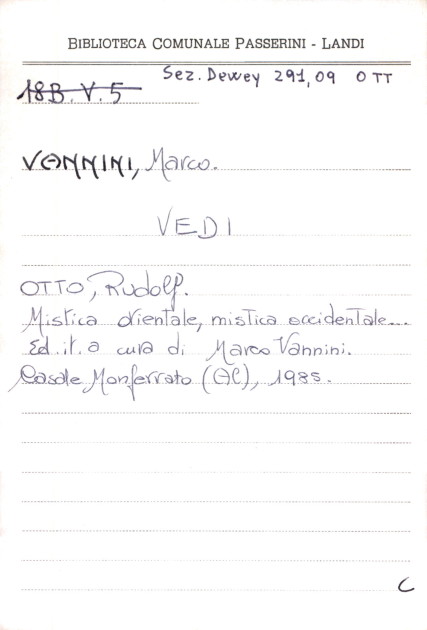 BIBLIOTECA COMUNALE PASSERINI - LANDI
Sez. Dewey 291,09 OTT
18B.V.5
VANNINI, Marco.
VEDI
OTTO, Rudolf.
Mistica orientale, mistica occidentale...
Ed. it. a cura di Marco Vannini.
Casale Monferrato (AL), 1985.
C